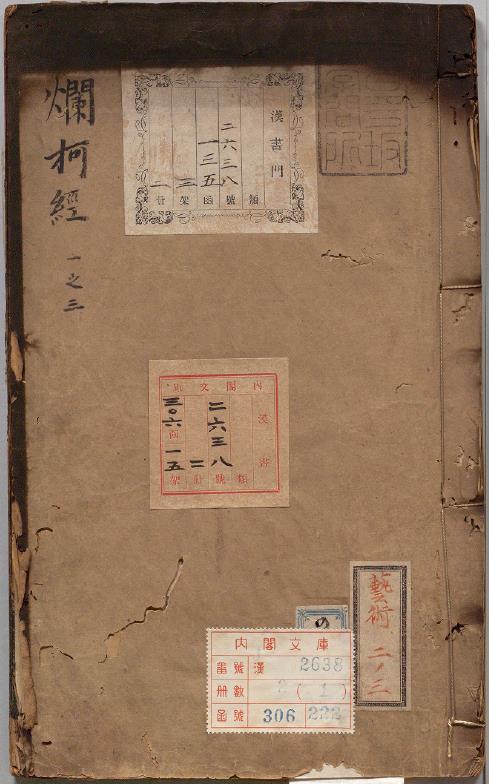 爛柯經 一之三
漢書門
類
二六三八
號
一三五
函
三
架
二
冊
內閣文庫
漢書
類
二六三八
號
二
冊
三〇六
函
一五
架
藝術 二ノ三
の
内閣文庫
番號 漢 2638
冊數 2 (1)
函號 306 222